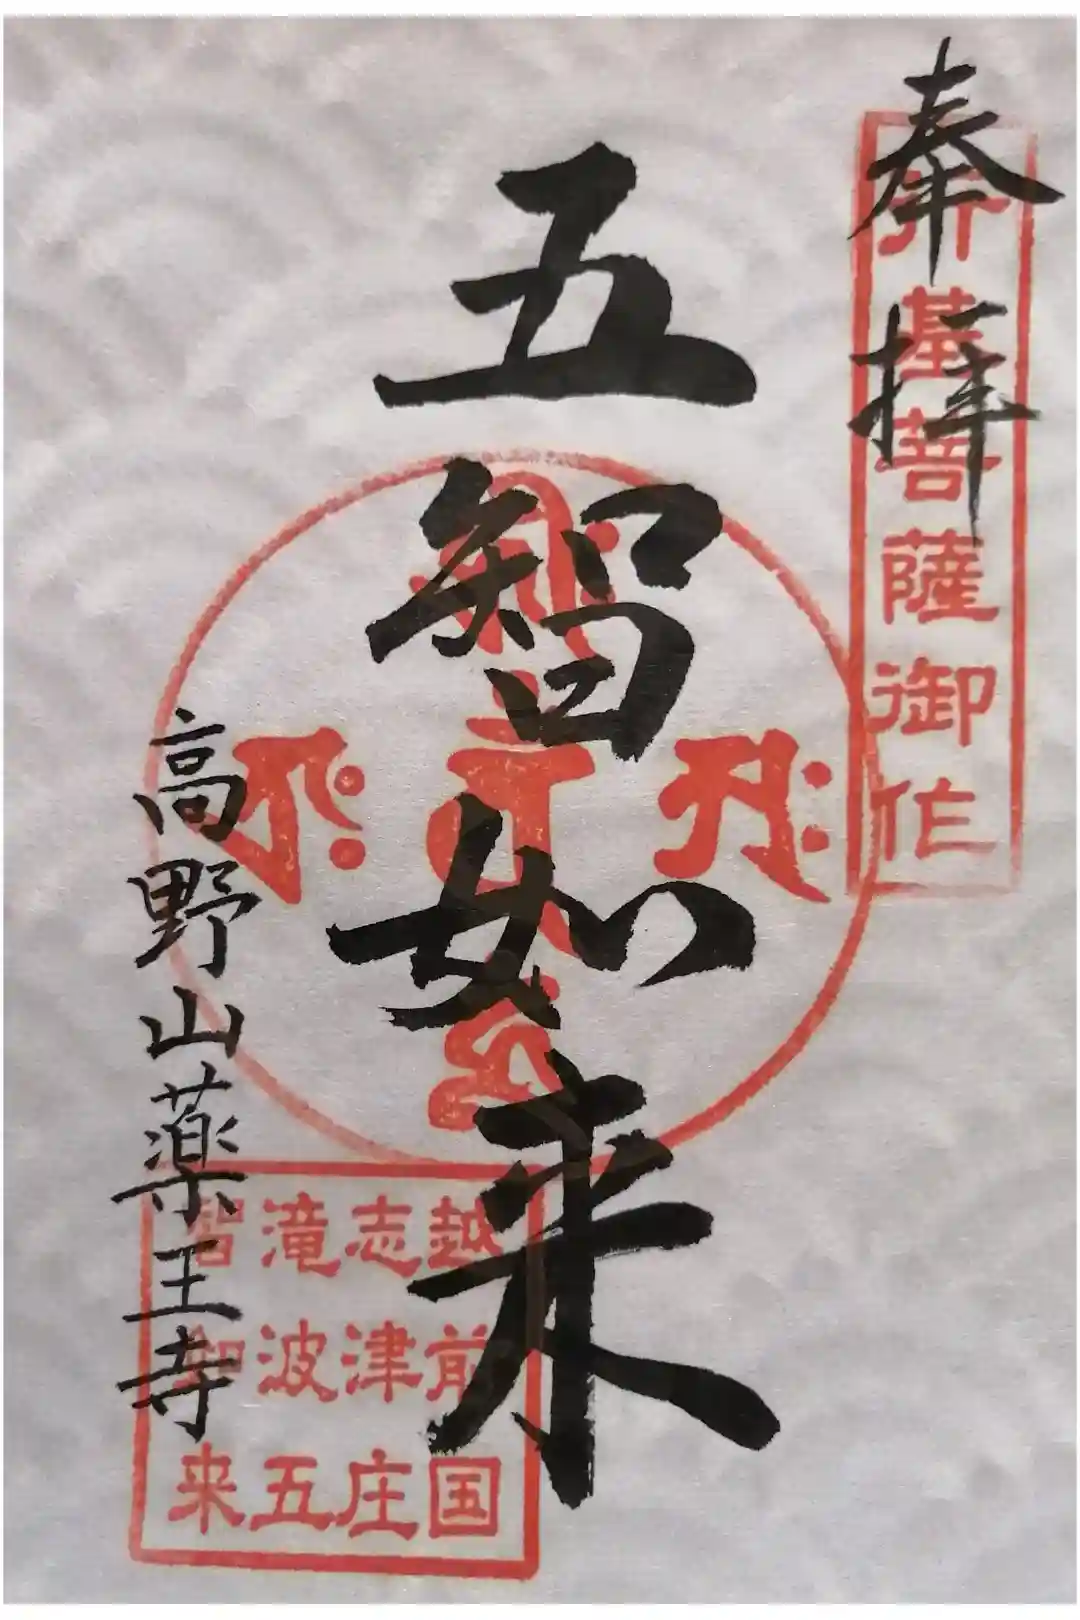 奉拝
行基菩薩御作
五智如来
高野山薬王寺
越前国
志津庄
滝波五
智如来